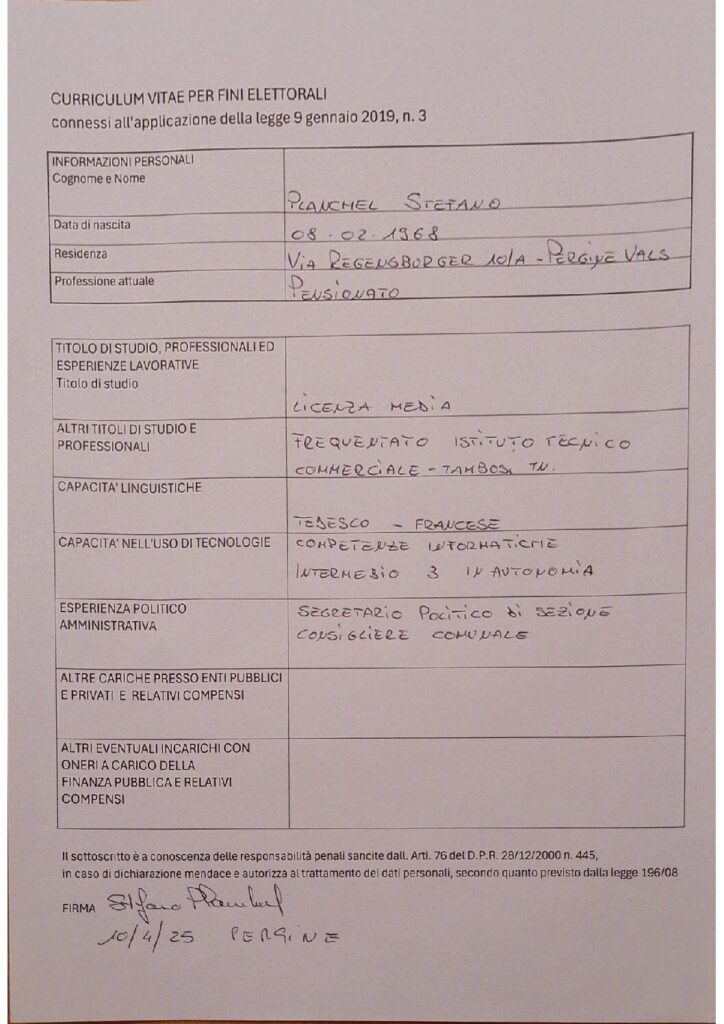 CURRICULUM VITAE PER FINI ELETTORALI
connessi all'applicazione della legge 9 gennaio 2019, n. 3
INFORMAZIONI PERSONALI
Cognome e Nome
PLANCHEL STEFANO
Data di nascita
08.02.1968
Residenza
VIA REGENSBURGER 10/A - PERGINE VALS
Professione attuale
PENSIONATO
TITOLO DI STUDIO, PROFESSIONALI ED
ESPERIENZE LAVORATIVE
Titolo di studio
LICENZA MEDIA
ALTRI TITOLI DI STUDIO E
PROFESSIONALI
FREQUENTATO ISTITUTO TECNICO
COMMERCIALE - TAMBOSI TN.
CAPACITA' LINGUISTICHE
TEDESCO - FRANCESE
CAPACITA' NELL'USO DI TECNOLOGIE
COMPETENZE INFORMATICHE
INTERMEDIO 3 IN AUTONOMIA
ESPERIENZA POLITICO
AMMINISTRATIVA
SEGRETARIO POLITICO DI SEZIONE
CONSIGLIERE COMUNALE
ALTRE CARICHE PRESSO ENTI PUBBLICI
E PRIVATI E RELATIVI COMPENSI
ALTRI EVENTUALI INCARICHI CON
ONERI A CARICO DELLA
FINANZA PUBBLICA E RELATIVI
COMPENSI
Il sottoscritto è a conoscenza delle responsabilità penali sancite dall. Arti. 76 del D.P.R. 28/12/2000 n. 445,
in caso di dichiarazione mendace e autorizza al trattamento dei dati personali, secondo quanto previsto dalla legge 196/08
FIRMA Stefano Planchel
10/4/25 PERGINE